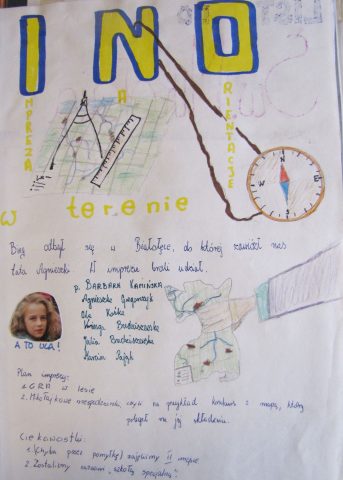 INO
IMPREZA
NA
ORIENTACJE
W terenie
Bieg odbył się w Białołęce, do której zawiózł nas
tata Agnieszki. W imprezie brali udział:
p. BARBARA KAMIŃSKA
Agnieszka
Ola
Kinga
Julia
Marcin Pająk
A TO UCA!
Plan imprezy:
1. GRA w lesie
2. Mikołajkowe niespodzianki, czyli na przykład konkurs z mapą, który
polegał na jej składaniu.
Ciekawostki:
1. (Chyba przez pomyłkę) zajęliśmy II miejsce
2. Zostaliśmy nazwani "szkołą specjalną".
N
E
S
W